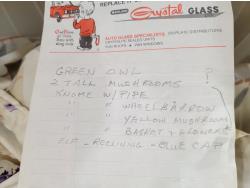 REPLACE I
Crystal GLASS
AUTO GLASS SPECIALISTS
SUNROOFS • VAN WINDOWS
GREEN OWL
2 TALL MUSHROOMS
KNOME W/ PIPE
" " WHEELBARROW
" " YELLOW MUSHROOMS
" " BASKET & FLOWERS
ELF - RECLINING - BLUE CAP
?